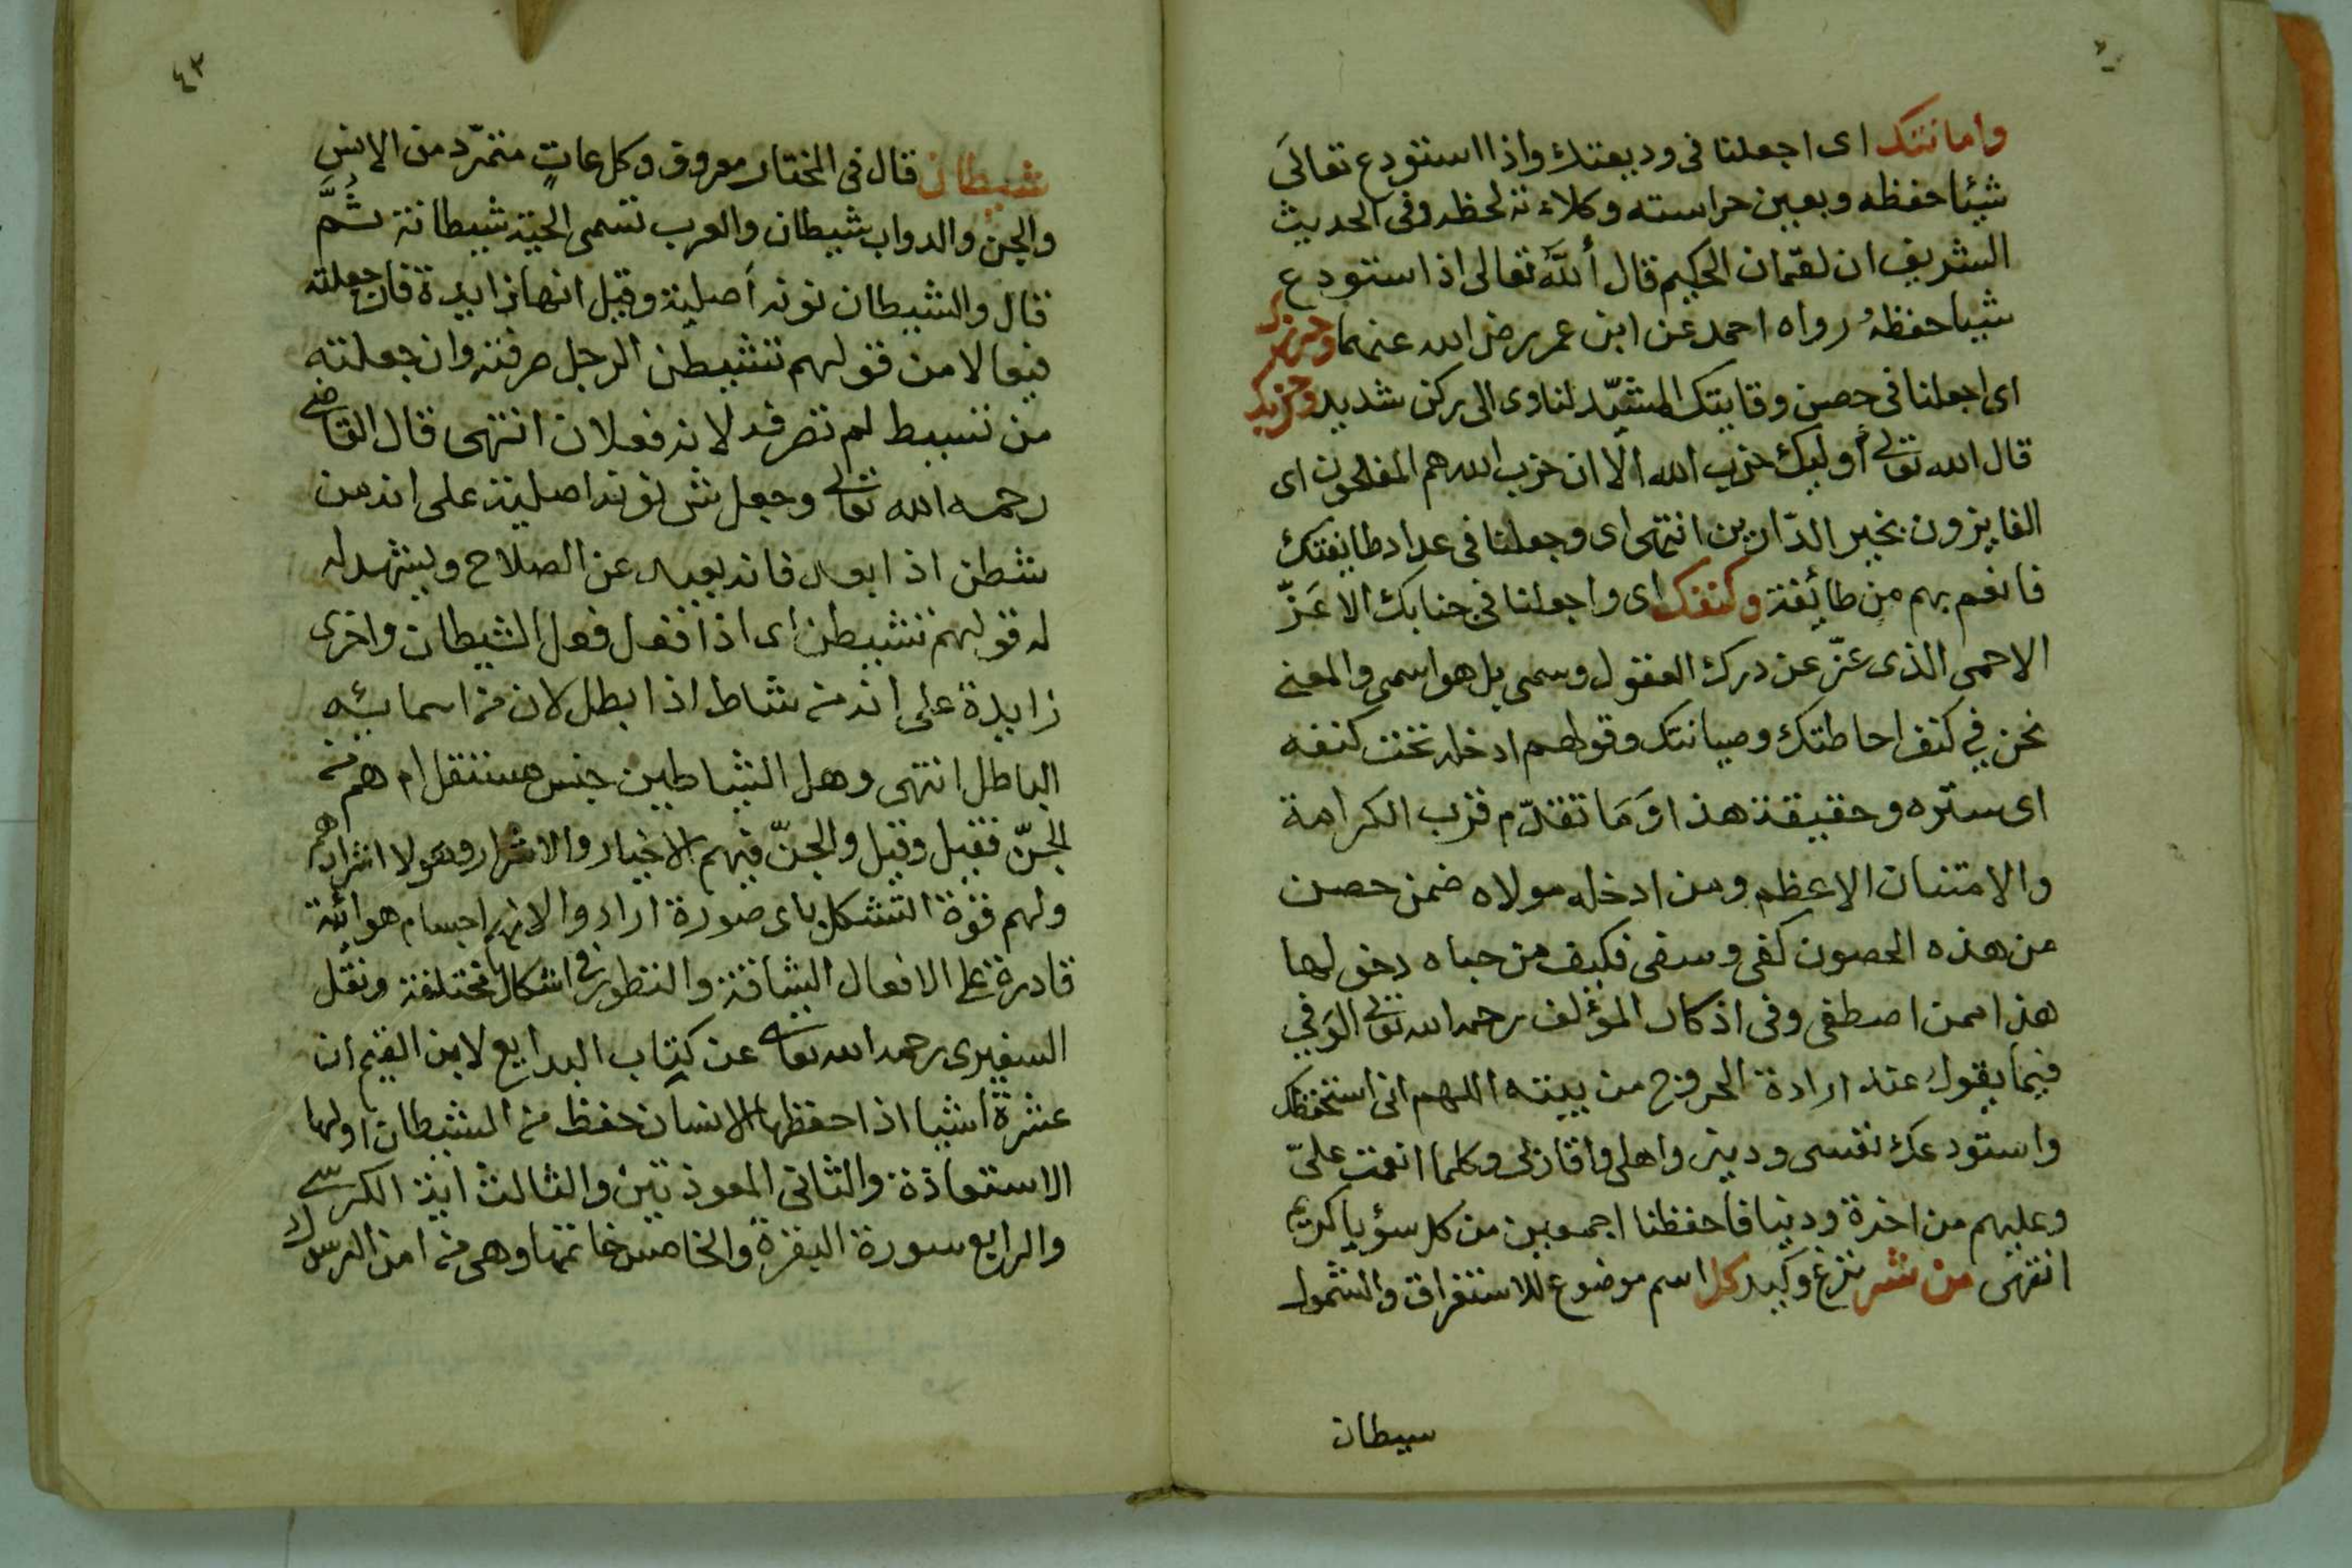 وامانتك اى اجعلنا فى وديعتك واذا استودع تعالىَ
شيئا حفظه وبعين حراسته وكلاءته لحظه وفى الحديث
الشريف ان لقمان الحكيم قال أن الله تعالى اذا استودع
شيا حفظه رواه احمد عن ابن عمر رضى الله عنهما وحرزك
اى اجعلنا فى حصن وقايتك المشيّد لناوى الى ركن شديد وحزبك
قال الله تعالى أوليك حزب الله الا ان حزب الله هم المفلحون اى
الفايزون بخير الدّارين انتهى اى وجعلنا فى عداد طايفتك
فانعم بهم من طائفة وكنفك اى واجعلنا فى جنابك الاعَزّ
الاحمى الذى عزّ عن درك العقول وسمى بل هو اسمى والمعنى
نحن في كنف احاطتك وصيانتك وقولهم ادخله تحت كنفه
اى ستره وحقيقة هذا وَمَا تقدّم قرب الكرامة
والامتنان الاعظم ومن ادخله مولاه ضمن حصن
من هذه الحصون كفى وسفى فكيف من حباه دخولها
هذا ممن اصطفى وفى اذكار المؤلف رحمه الله تعالى الوَفي
فيما يقول عند ارادة الخروج من بيته اللهم انى استحفظك
واستودعك نفسى ودينى واهلى واقاربى وكلما انعمت علىّ
وعليهم من اخرة ودنيا فاحفظنا اجمعين من كل سؤ يا كريم
انتهى من شر نزغ وكيد كل اسم موضوع للاستغراق والشمول
سيطان
٤٣
شيطان قال فى المختار معروف وكل عاتٍ متمرّد من الانس
والجن والدواب شيطان والعرب تسمى الحية شيطانة ثُمَّ
قال والشيطان نونه أصلية وقيل انها زايدة فان جعلته
فيعالا من قولهم تشيطن الرجل صرفته وان جعلته
من تشيط لم تصرفه لانه فعلان انتهى قال القاضى
رحمه الله تعالى وجعل ش نونه اصلية على انه من
شطن اذا بعد فانه بعيد عن الصلاح ويشهد له
له قولهم تشيطن اى اذا فعل فعل الشيطان واخرى
زايدة على انه من شاط اذا بطل لان من اسمائه
الباطل انتهى وهل الشياطين جنس مستقل ام هم من
الجنّ فقيل وقيل والجنّ فيهم الاخيار والاشرار وهولا اشرارهم
ولهم قوّة التشكل باى صورة ارادوا لانهم اجسام هوائية
قادرة على الافعال الشاقة والتطور فى اشكال مختلفة ونقل
السفيرى رحمه الله تعالى عن كتاب البدايع لابن القيم ان
عشرة اشيا اذا حفظها الانسان حفظ من الشيطان اولها
الاستعاذة والثانى المعوذتين والثالث اية الكرسى
والرابع سورة البقرة والخامس خاتمتها وهى من امن الرسول